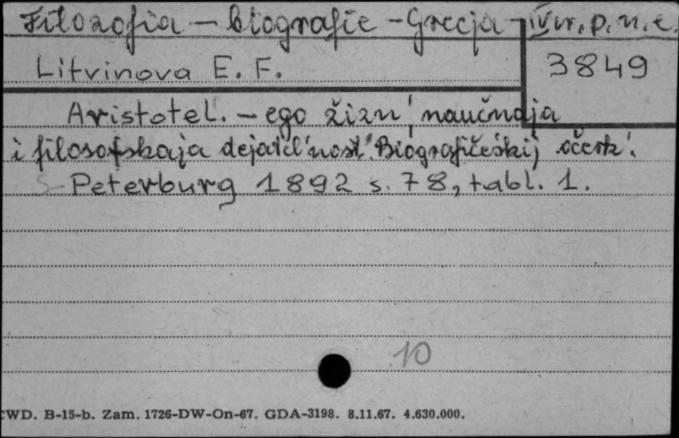 Filozofia - biografie - Grecja - IV w. p. n. e.
Litvinova E. F.
3849
Aristotel. - ego žizn' naučnaja
i filosofskaja dejatel'nost'. Biografičeskij očerk.
S- Peterburg 1892 s. 78, tabl. 1.
10
CWD. B-15-b. Zam. 1726-DW-On-67. GDA-3198. 8.11.67. 4.630.000.